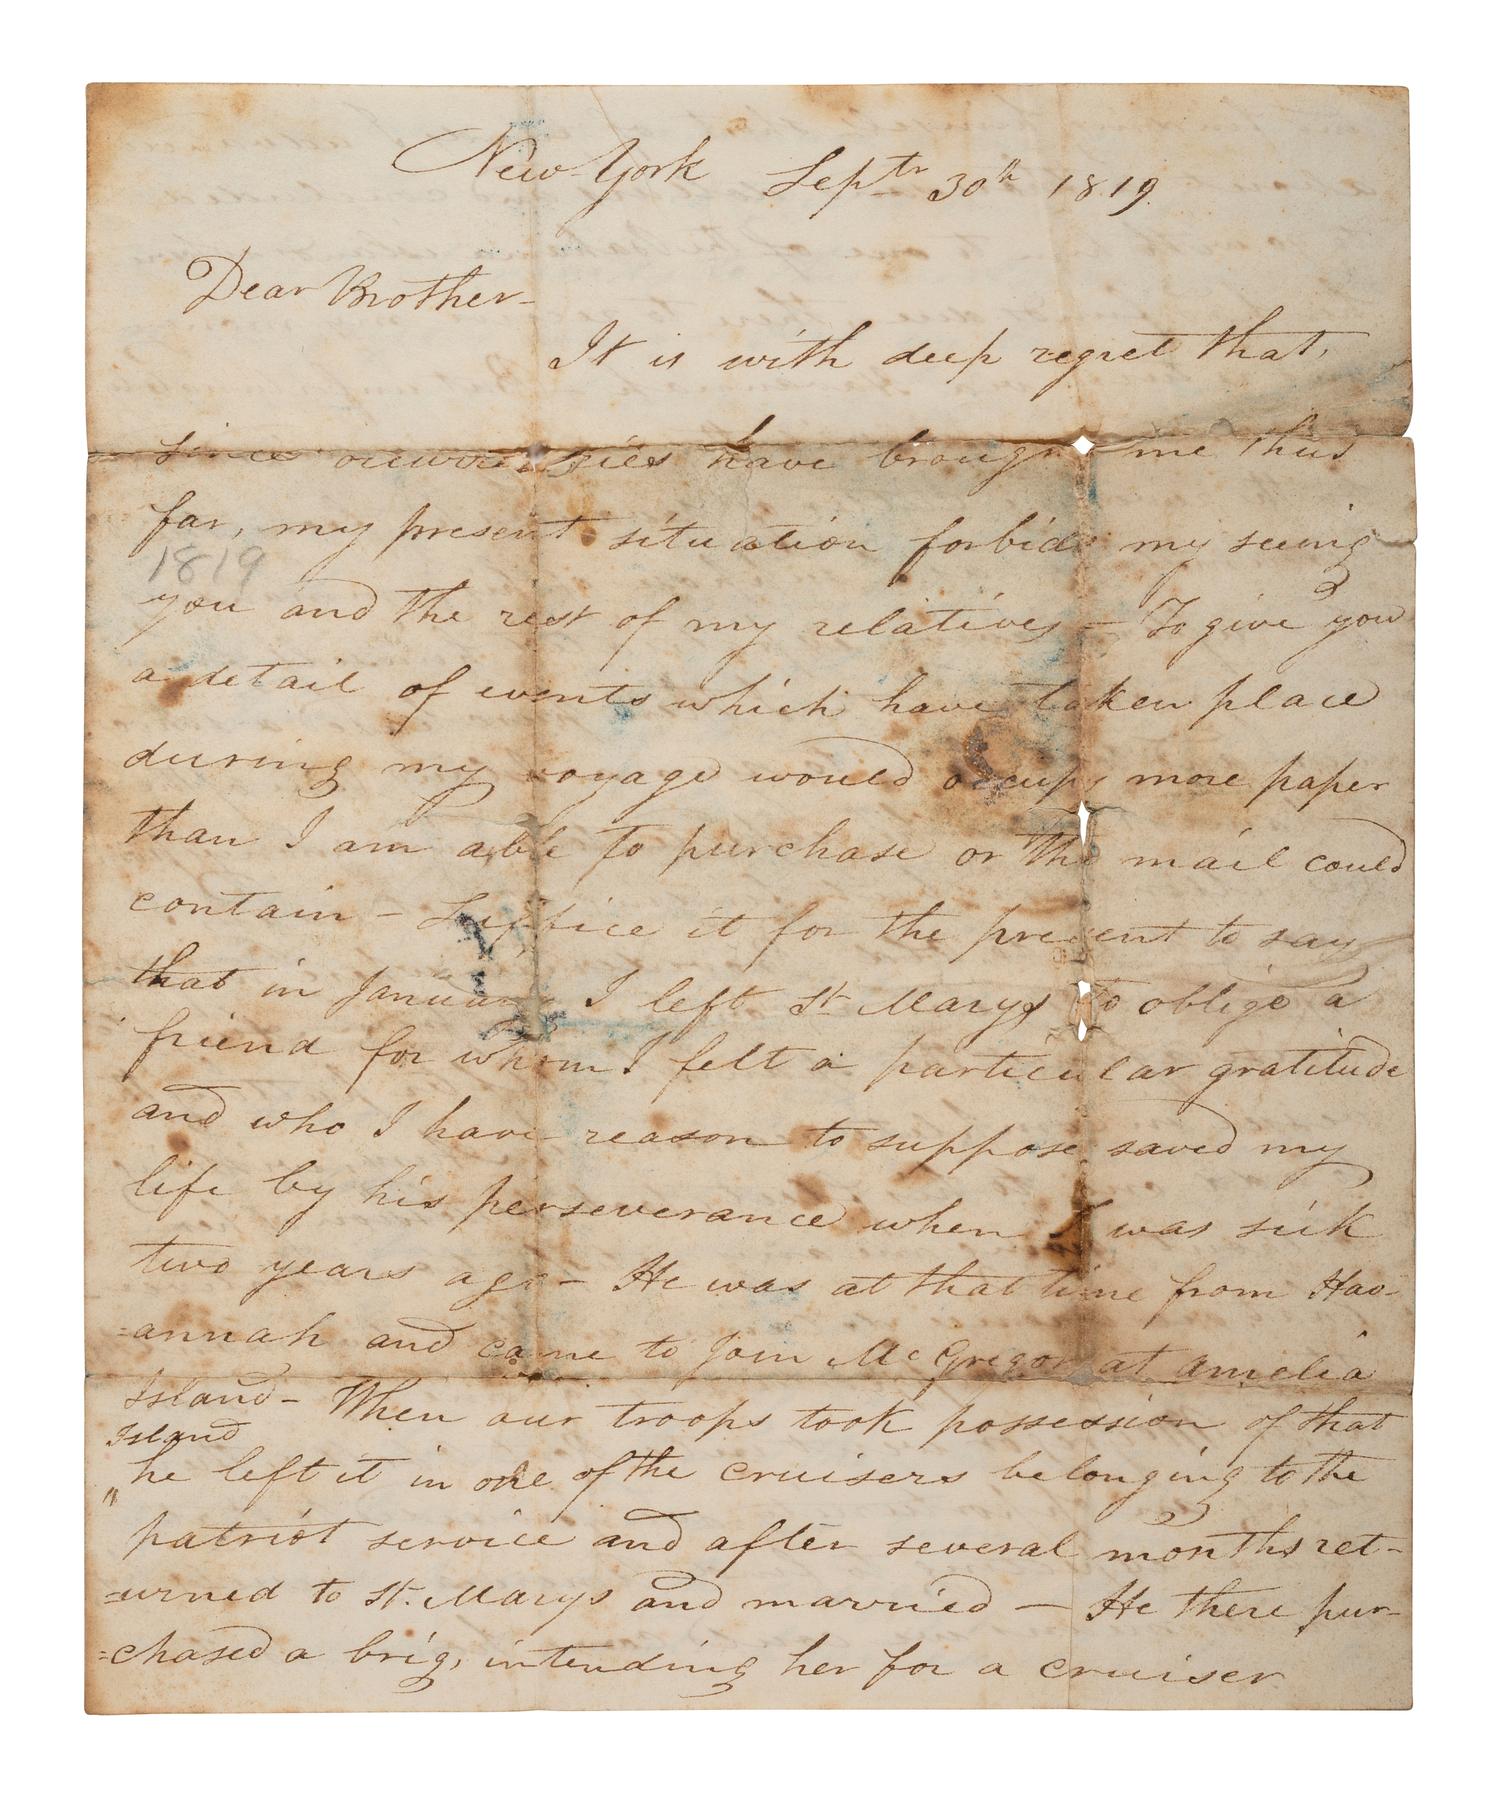 New-York Septr 30th 1819.
Dear Brother-
It is with deep regret that,
since occurrencies have brought me thus
far, my present situation forbids my seeing
1819
you and the rest of my relatives - To give you
a detail of events which have taken place
during my voyage would occupy more paper
than I am able to purchase or the mail could
contain - Suffice it for the present to say
that in January I left St Marys to oblige a
friend for whom I felt a particular gratitude
and who I have reason to suppose saved my
life by his perseverance when I was sick
two years ago - He was at that time from Hav-
=annah and came to join McGregor at amelia
Island - When our troops took possession of that
Island
" he left it in one of the cruisers belonging to the
patriot service and after several months ret-
=urned to St. Marys and married - He there pur-
=chased a brig, intending her for a cruiser